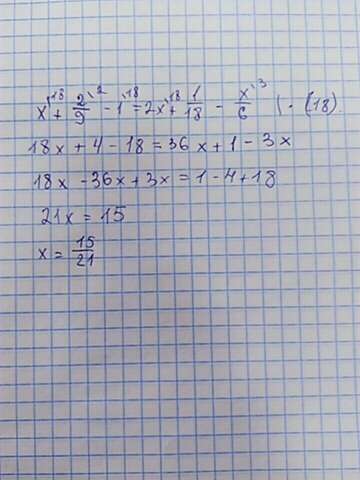 x^{\18} + \frac{2}{9}^{\2} - 1^{\18} = 2x^{\18} + \frac{1}{18} - \frac{x}{6}^{\3} | · (18)
18x + 4 - 18 = 36x + 1 - 3x
18x - 36x + 3x = 1 - 4 + 18
21x = 15
x = \frac{15}{21}